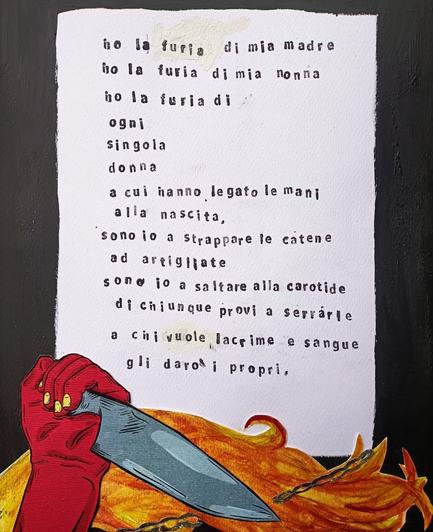 ho la furia di mia madre
ho la furia di mia nonna
ho la furia di
ogni
singola
donna
a cui hanno legato le mani
alla nascita,
sono io a strappare le catene
ad artigliate
sono io a saltare alla carotide
di chiunque provi a serrarle
a chi vuole lacrime e sangue
gli darò i propri.